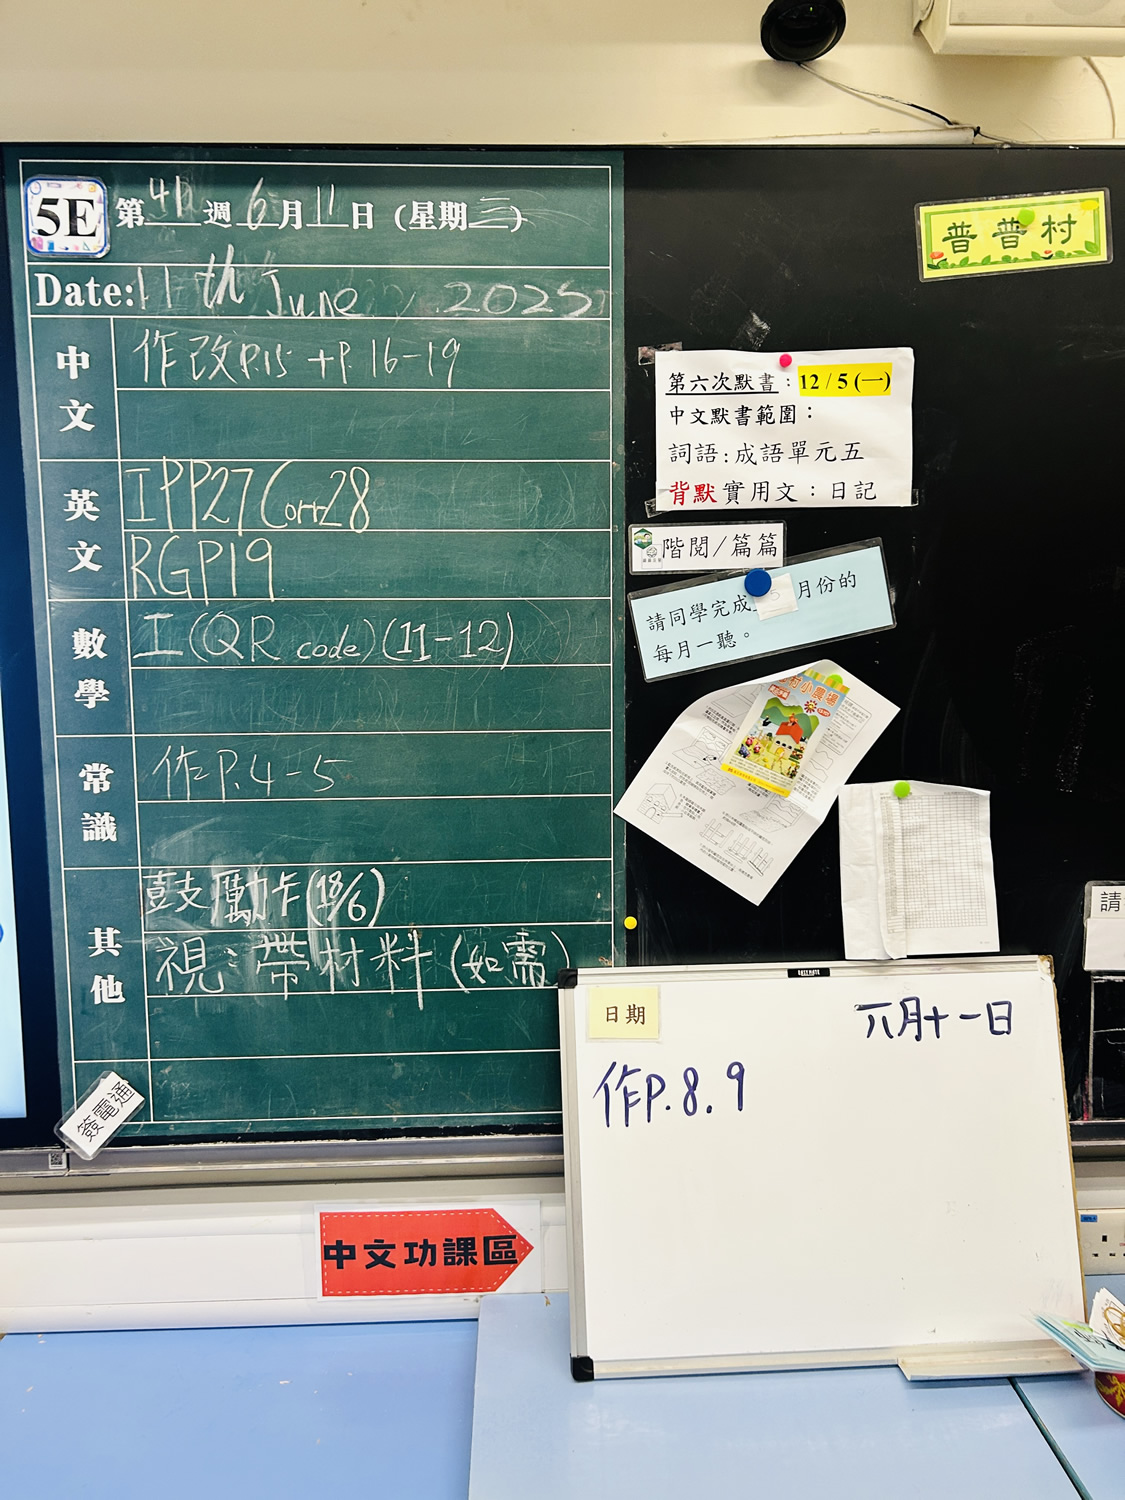 5E
第41週6月11日（星期三）
Date: 11th June, 2025
中文
作改P.15 + P.16-19
英文
IPP27 Corr28
RGP19
數學
工(QR code)(11-12)
常識
作P.4-5
其他
鼓勵卡(18/6)
視：帶材料(如需)
簽電通
普普村
第六次默書：12/5(一)
中文默書範圍：
詞語：成語單元五
背默實用文：日記
階閱/篇篇
請同學完成 5 月份的
每月一聽。
村小農場
請
日期
六月十一日
作P.8.9
中文功課區